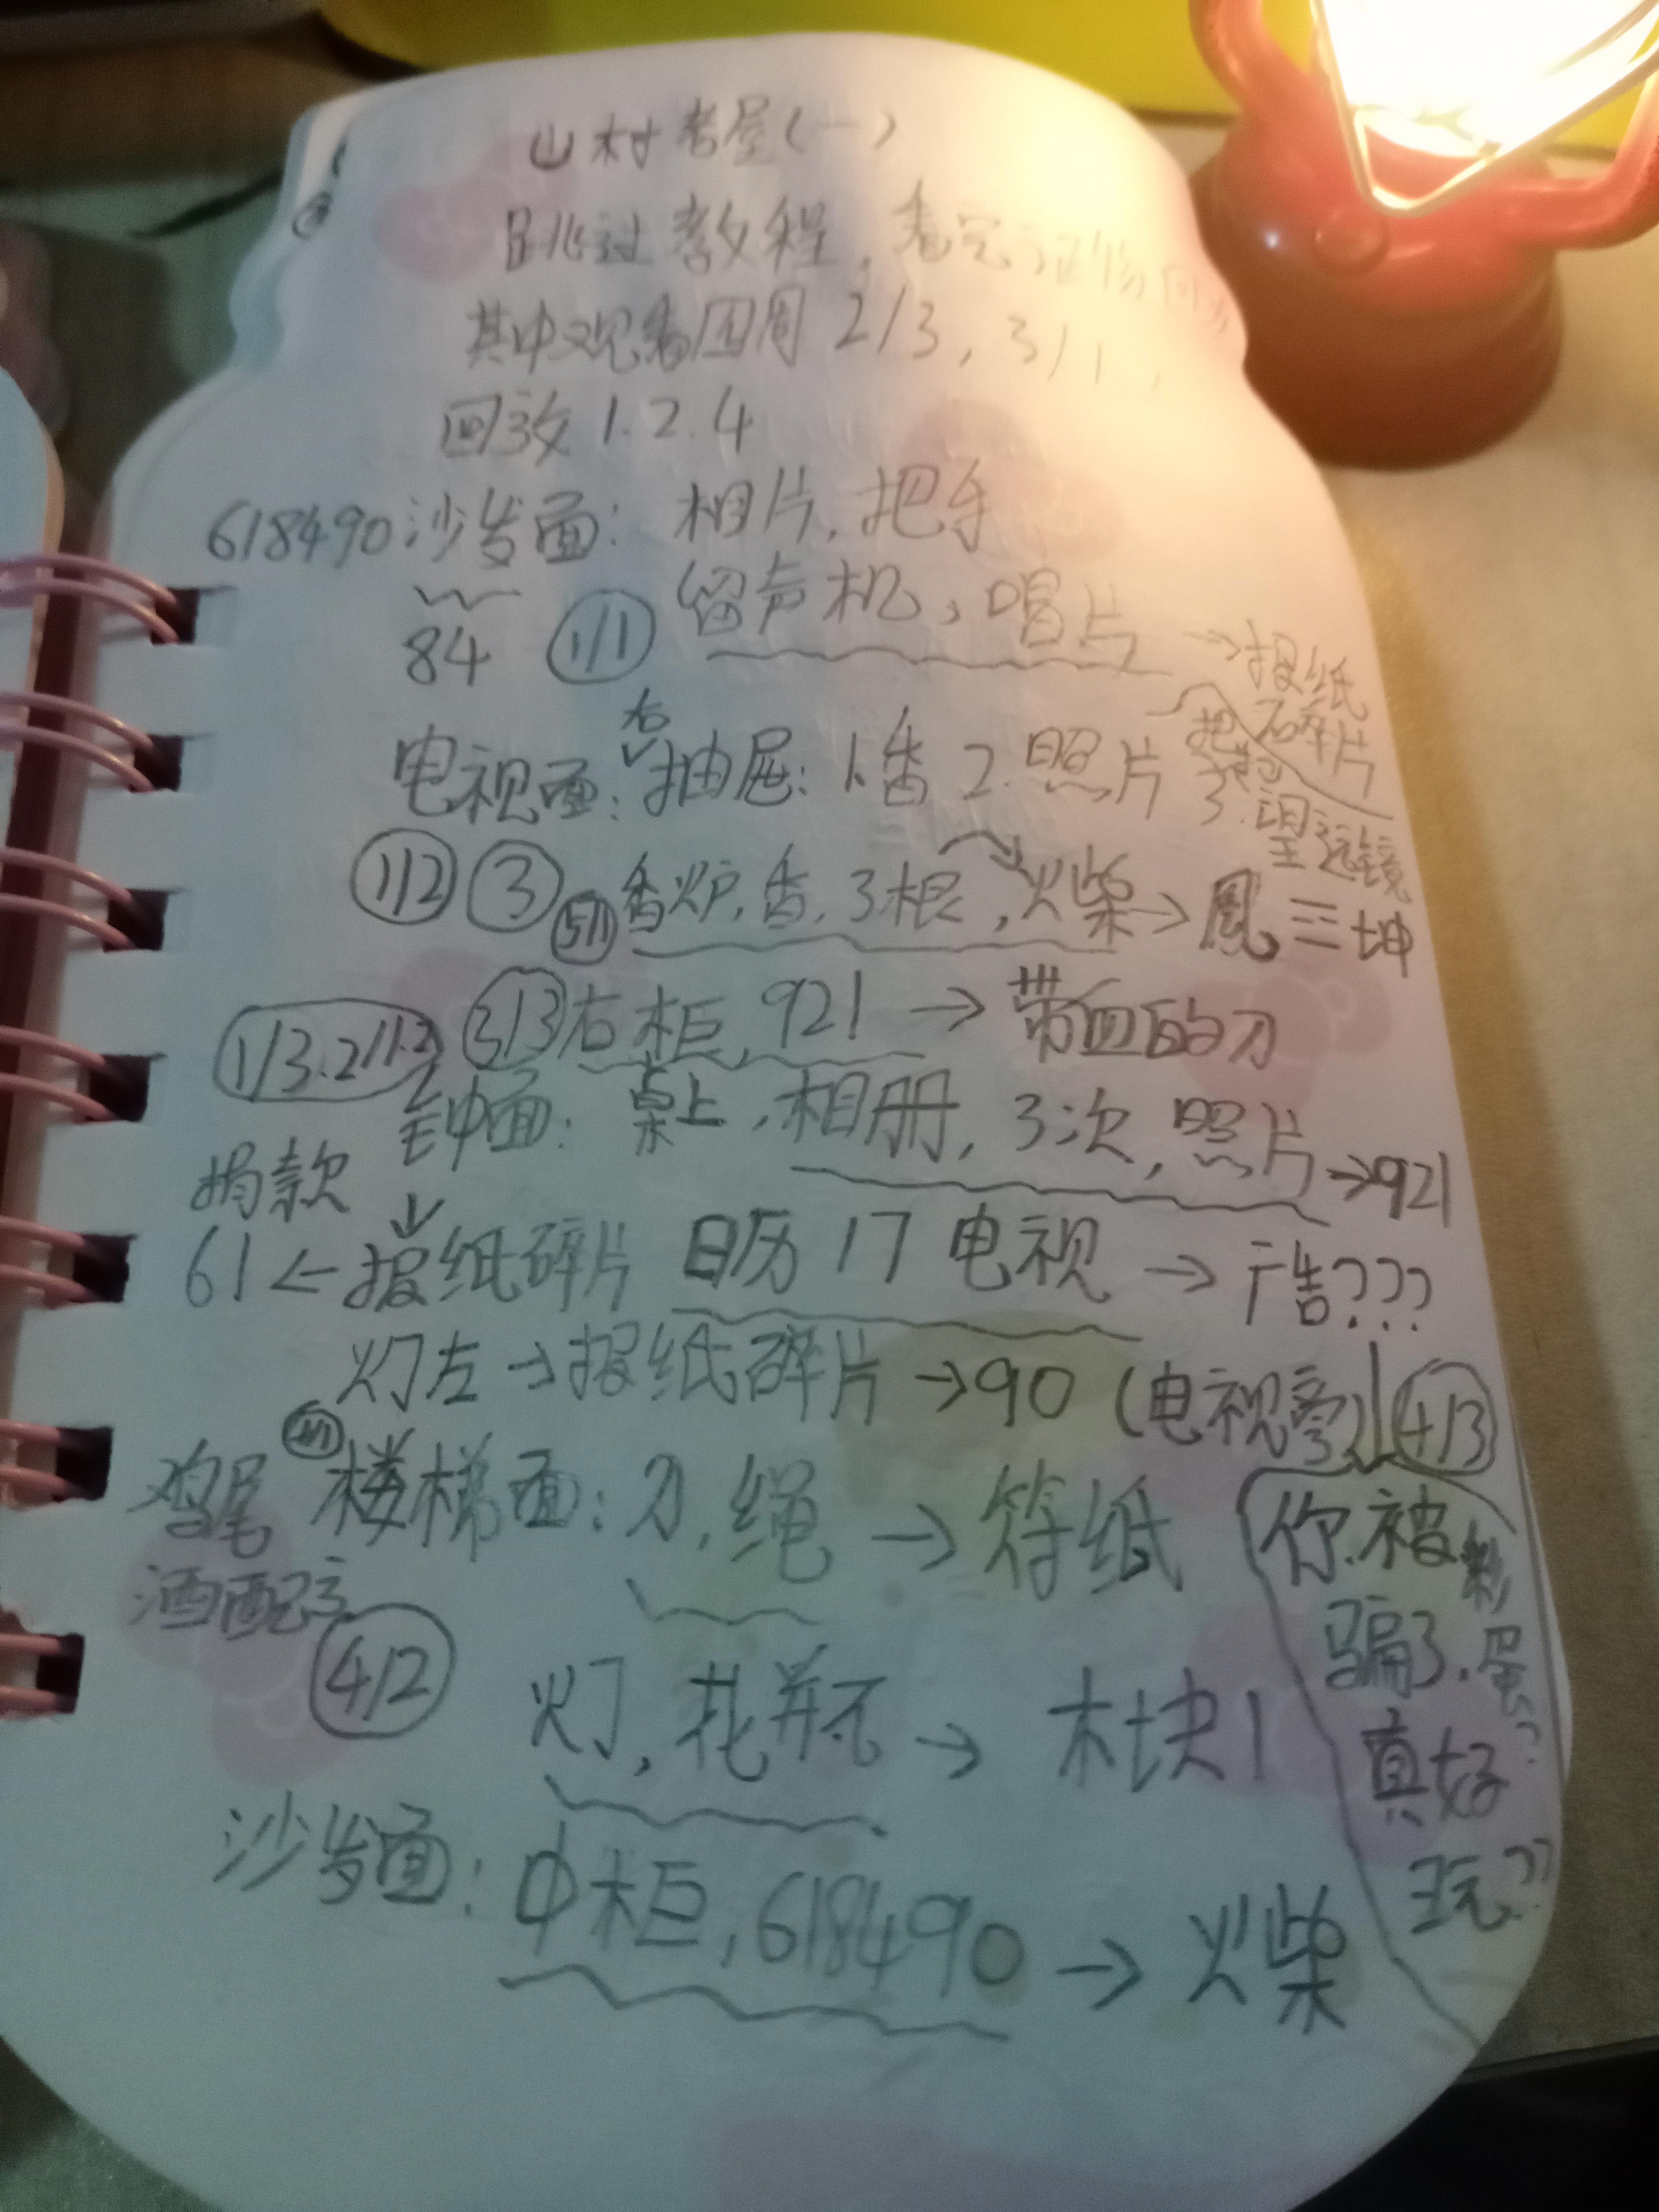 山村老屋（一）
跳过教程，看完证物回放
其中观看四周 2/3，3/1，
回放 1.2.4
618490 沙发面：相片，把手
84 1/1 留声机，唱片 →报纸碎片
电视面：右抽屉：1.香 2.照片 3.望远镜
1/2 3 5/1 香炉，香，3根，火柴→凤 ☷ 坤
1/3.2/1.2 3/3 右柜，921 → 带血的刀
钟面：桌上，相册，3次，照片→921
捐款
61 ← 报纸碎片 日历 17 电视 → 广告？？？
灯左→报纸碎片→90（电视旁） 4/3
鸡尾酒配方 4/1 楼梯面：刀，绳 → 符纸
你被骗了，真好玩？？
彩蛋？
4/2 灯，花瓶 → 木块1
沙发面：中柜，618490 → 火柴